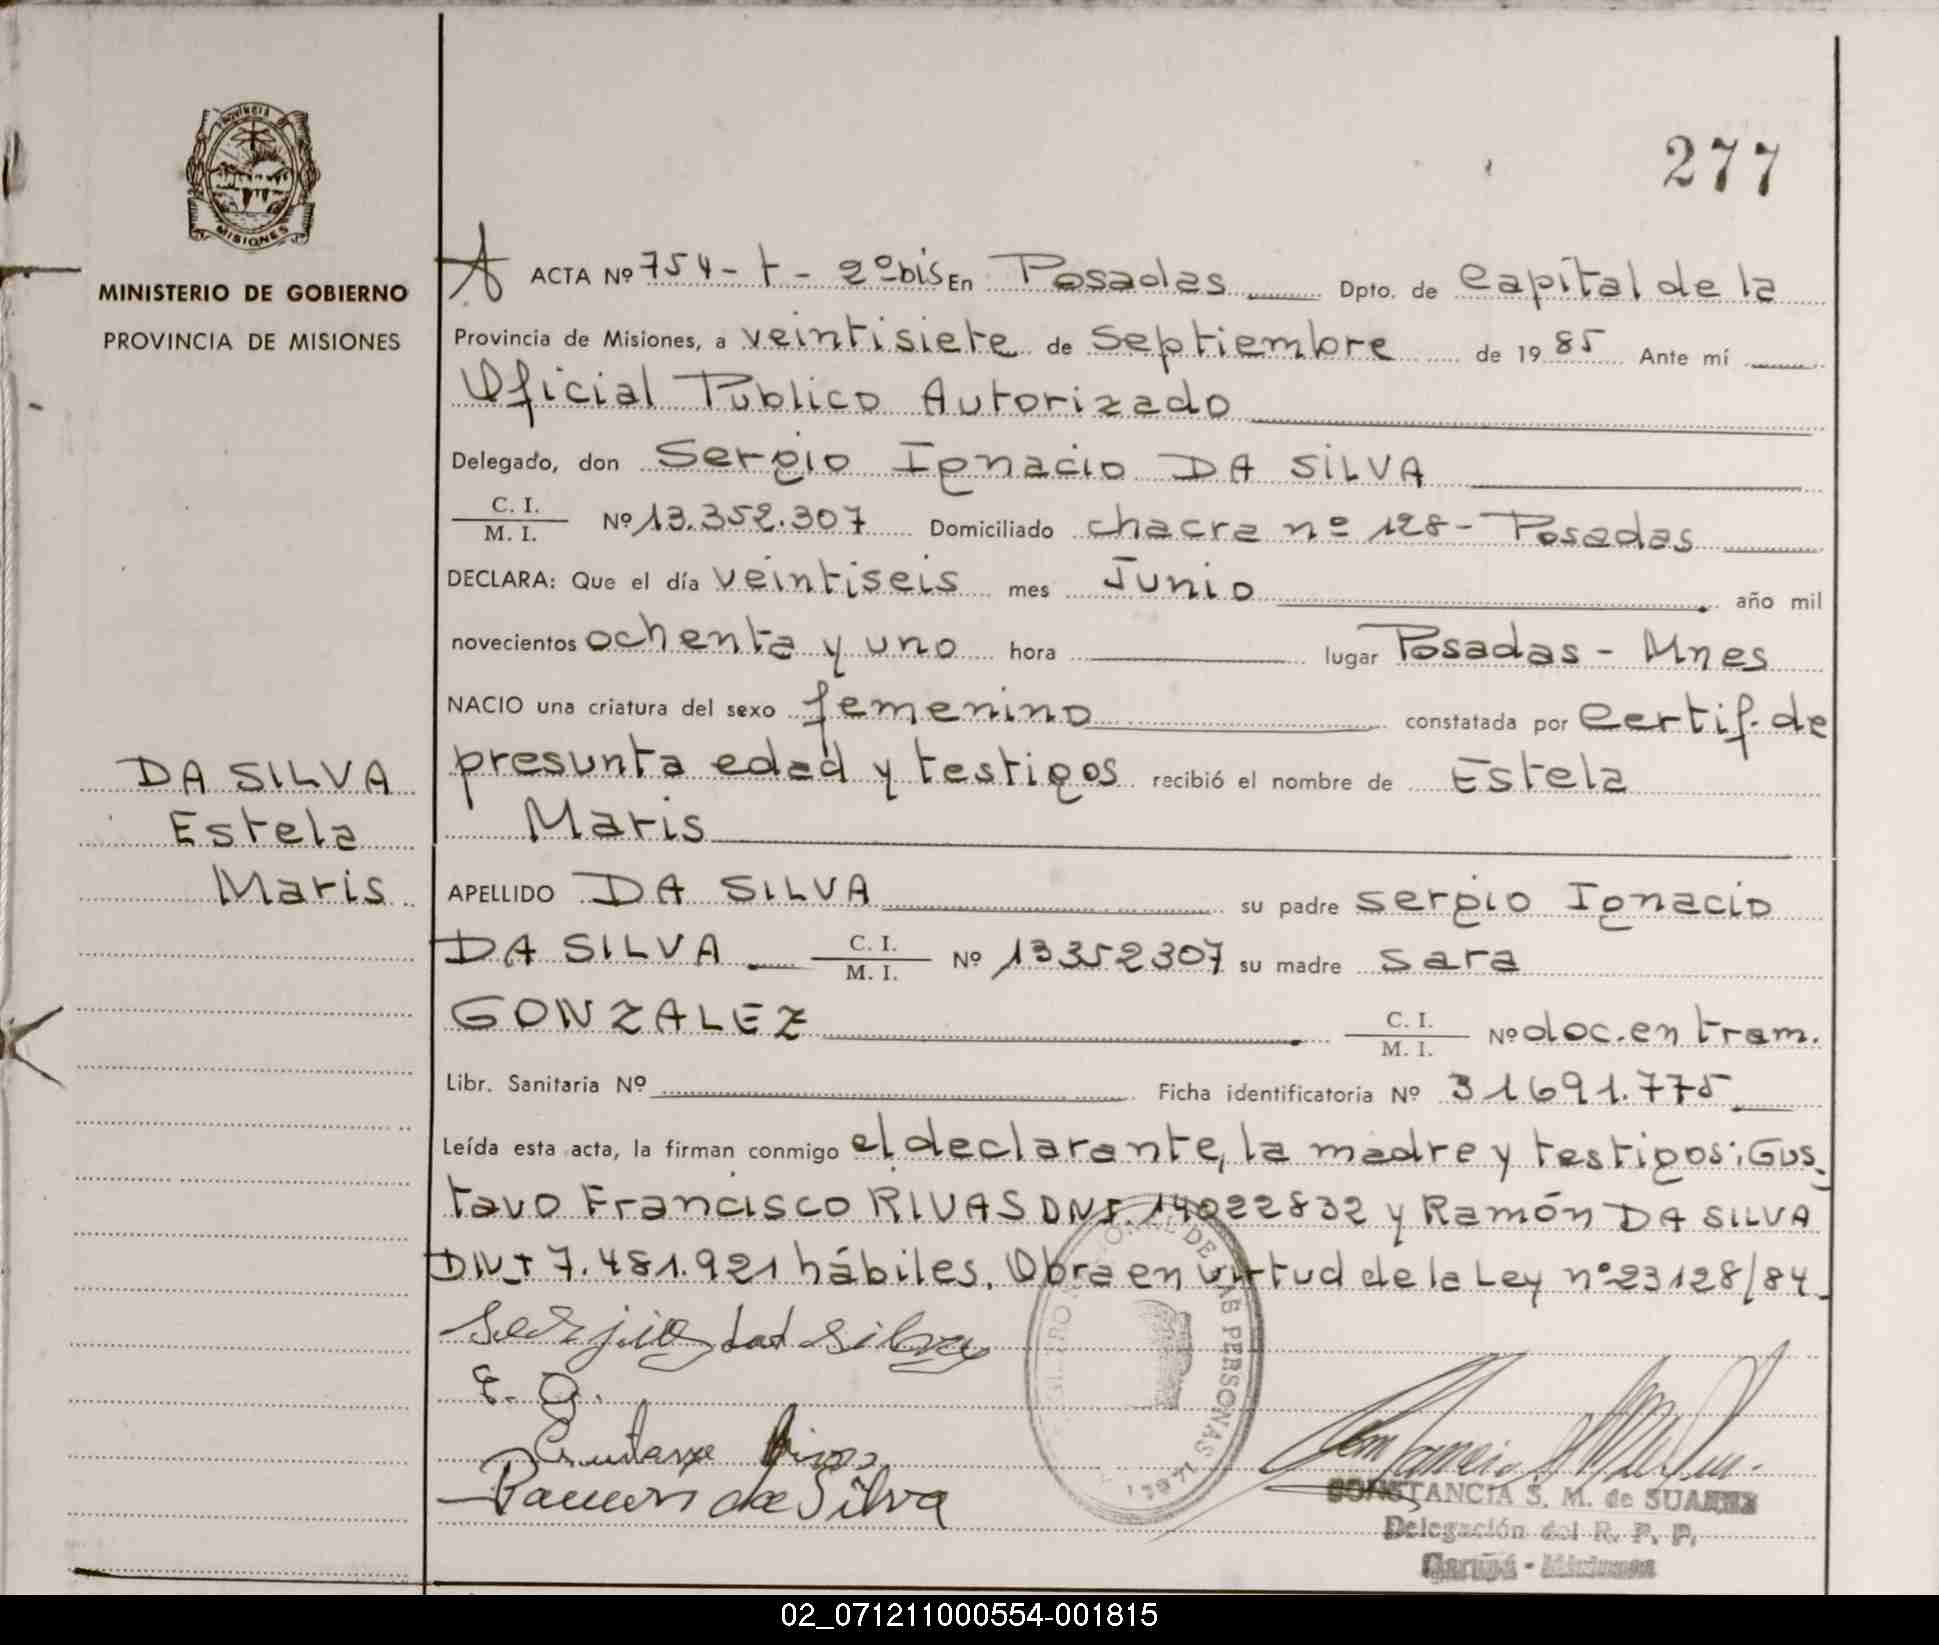 277
PROVINCIA
MISIONES
MINISTERIO DE GOBIERNO
PROVINCIA DE MISIONES
ACTA Nº 754-t-2º bis En Posadas Dpto. de Capital de la
Provincia de Misiones, a veintisiete de Septiembre de 19 85 Ante mí
Oficial Público Autorizado
Delegado, don Sergio Ignacio DA SILVA
C. I.
M. I. Nº 13.352.307 Domiciliado chacra nº 128 - Posadas
DECLARA: Que el día veintiseis mes Junio año mil
novecientos ochenta y uno hora lugar Posadas - Mnes
NACIO una criatura del sexo femenino constatada por Certif. de
presunta edad y testigos recibió el nombre de Estela
Maris
DA SILVA
Estela
Maris
APELLIDO DA SILVA su padre Sergio Ignacio
DA SILVA C. I. M. I. Nº 13352307 su madre Sara
GONZALEZ C. I. M. I. Nº doc. en tram.
Libr. Sanitaria Nº Ficha identificatoria Nº 31691.775
Leída esta acta, la firman conmigo el declarante, la madre y testigos: Gus
tavo Francisco RIVAS DNI. 14022832 y Ramón DA SILVA
DNI 7.481.921 hábiles. Obra en virtud de la Ley nº 23128/84
Serjio da silva
Ramon da Silva
DE LAS PERSONAS
CONSTANCIA S. M. de SUAREZ
Delegación del R. P. P.
Garupá - Misiones
02_071211000554-001815